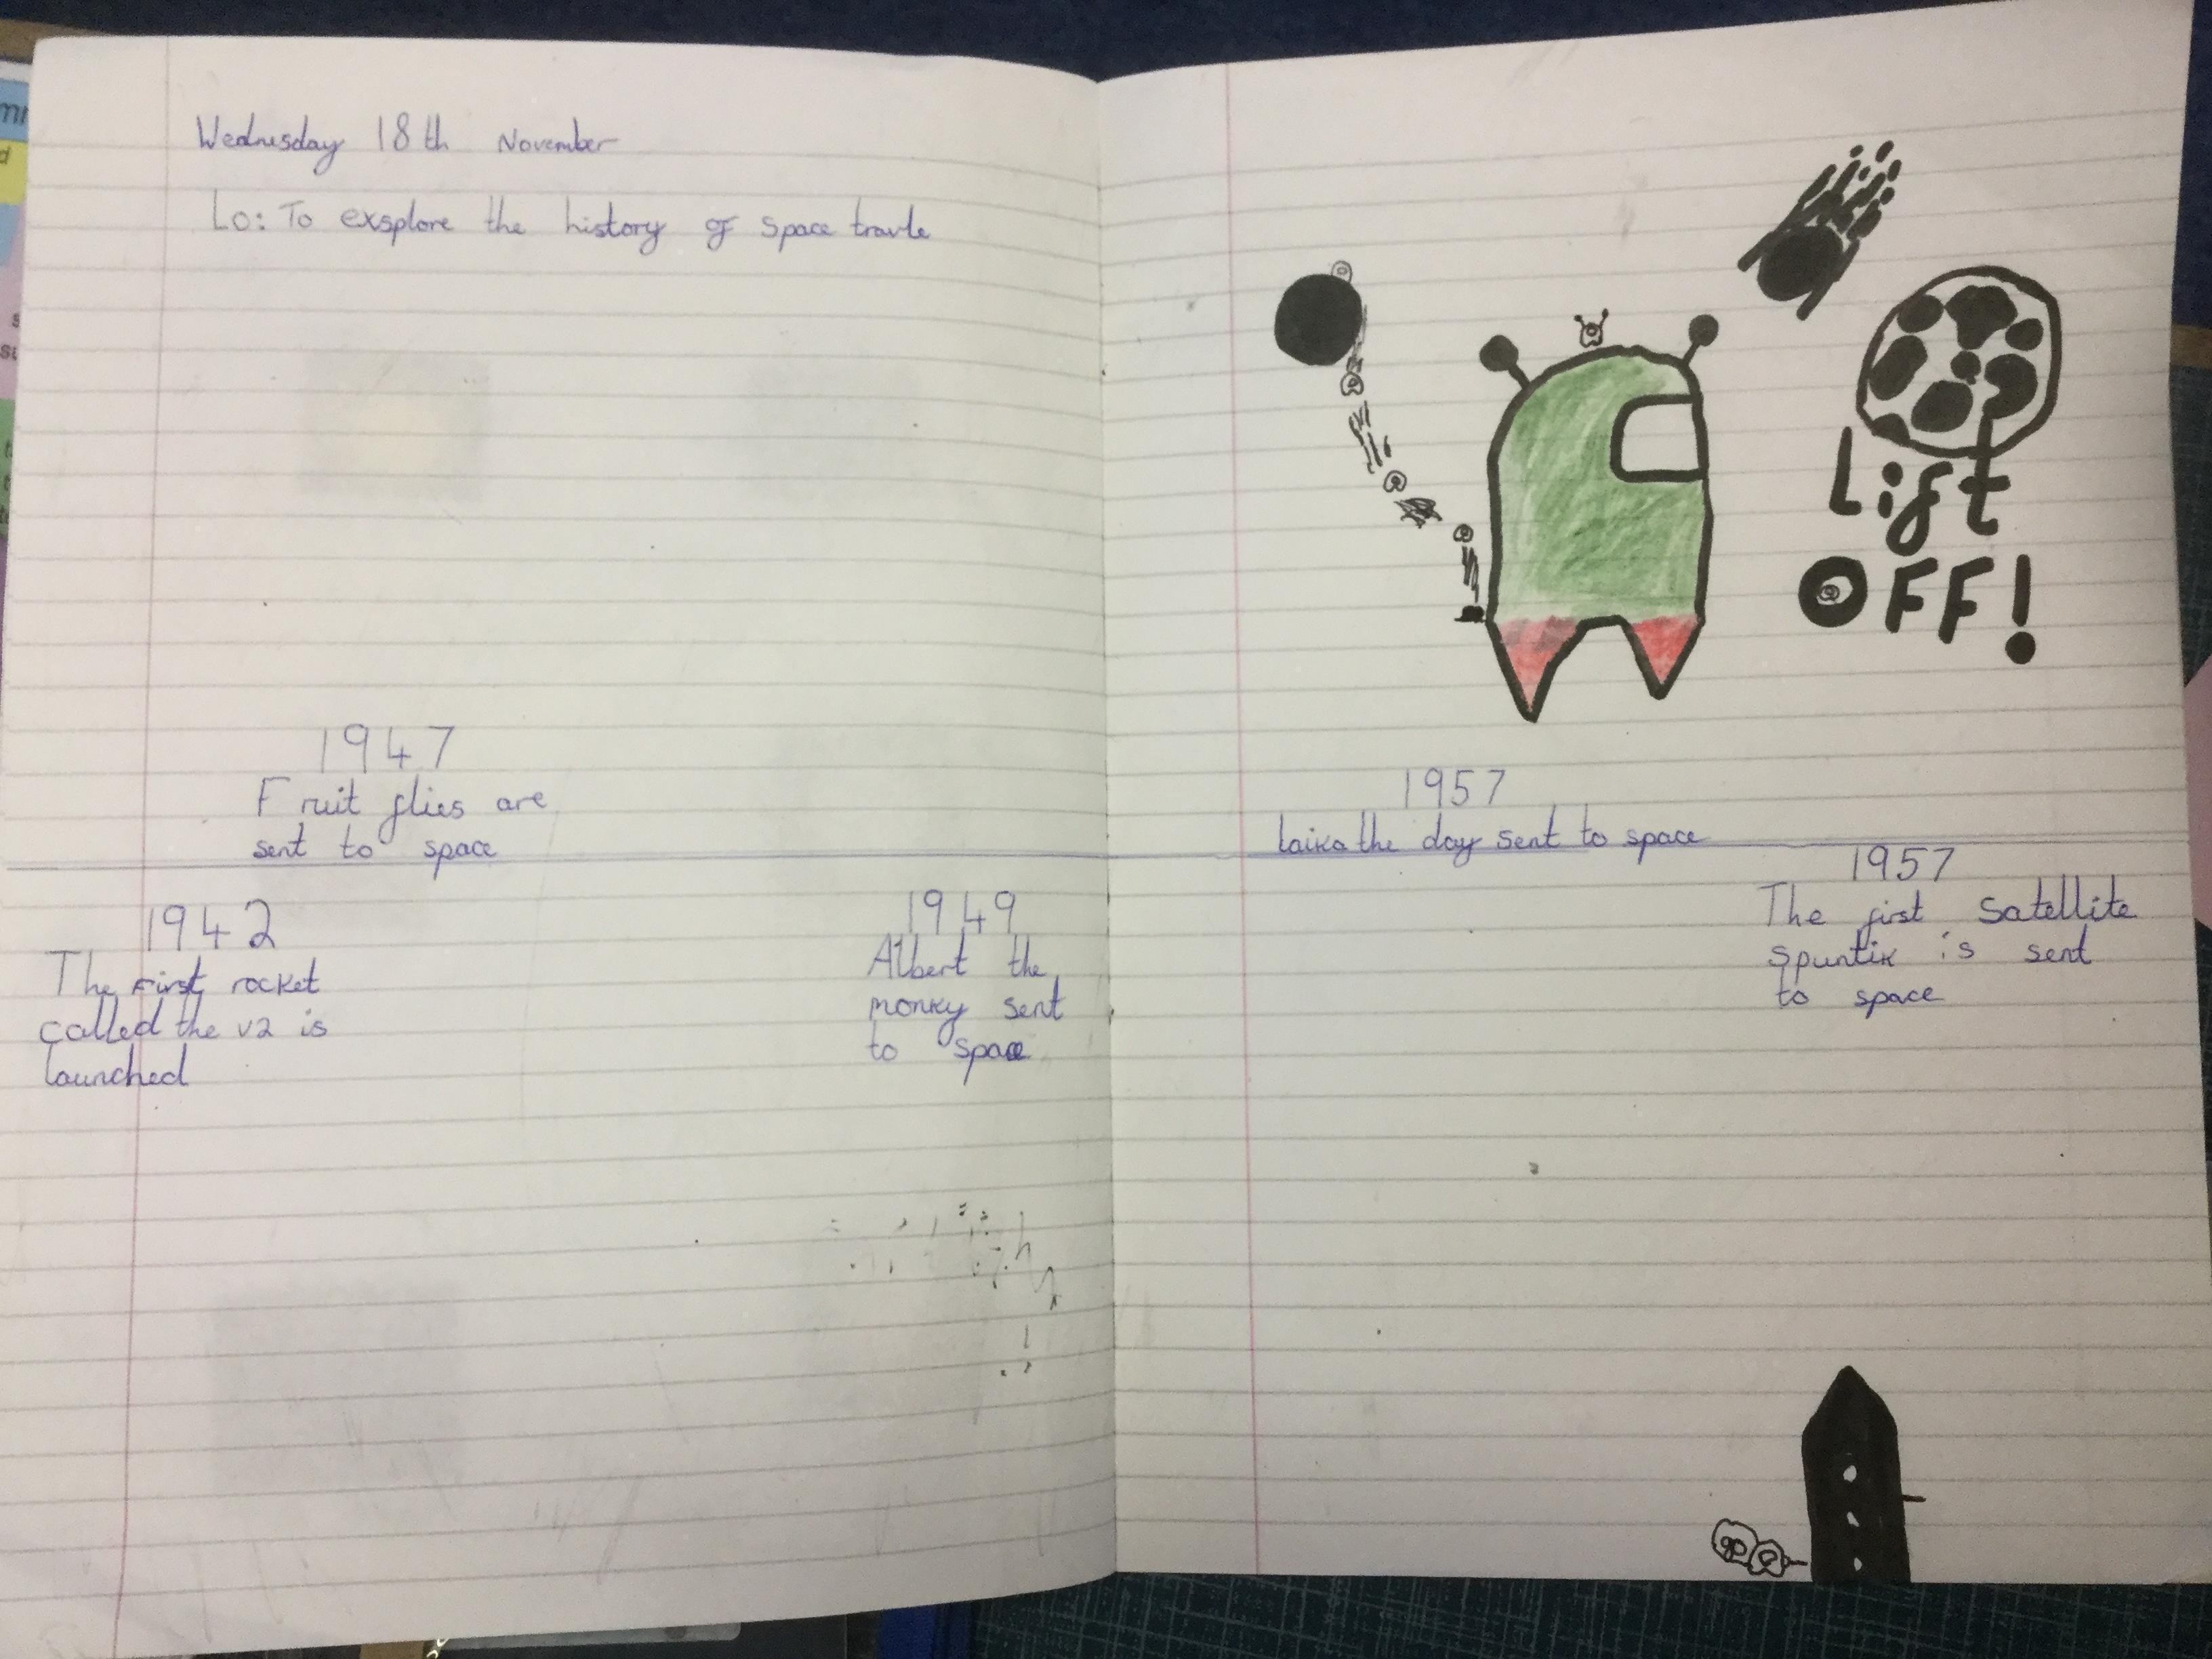 Wednesday 18th November
Lo: To exsplore the history of space travle
1947
Fruit flies are
sent to space
1942
The first rocket
called the v2 is
launched
1949
Albert the
monky sent
to space
Lift
OFF!
1957
laika the dog sent to space
1957
The first satellite
spuntik is sent
to space